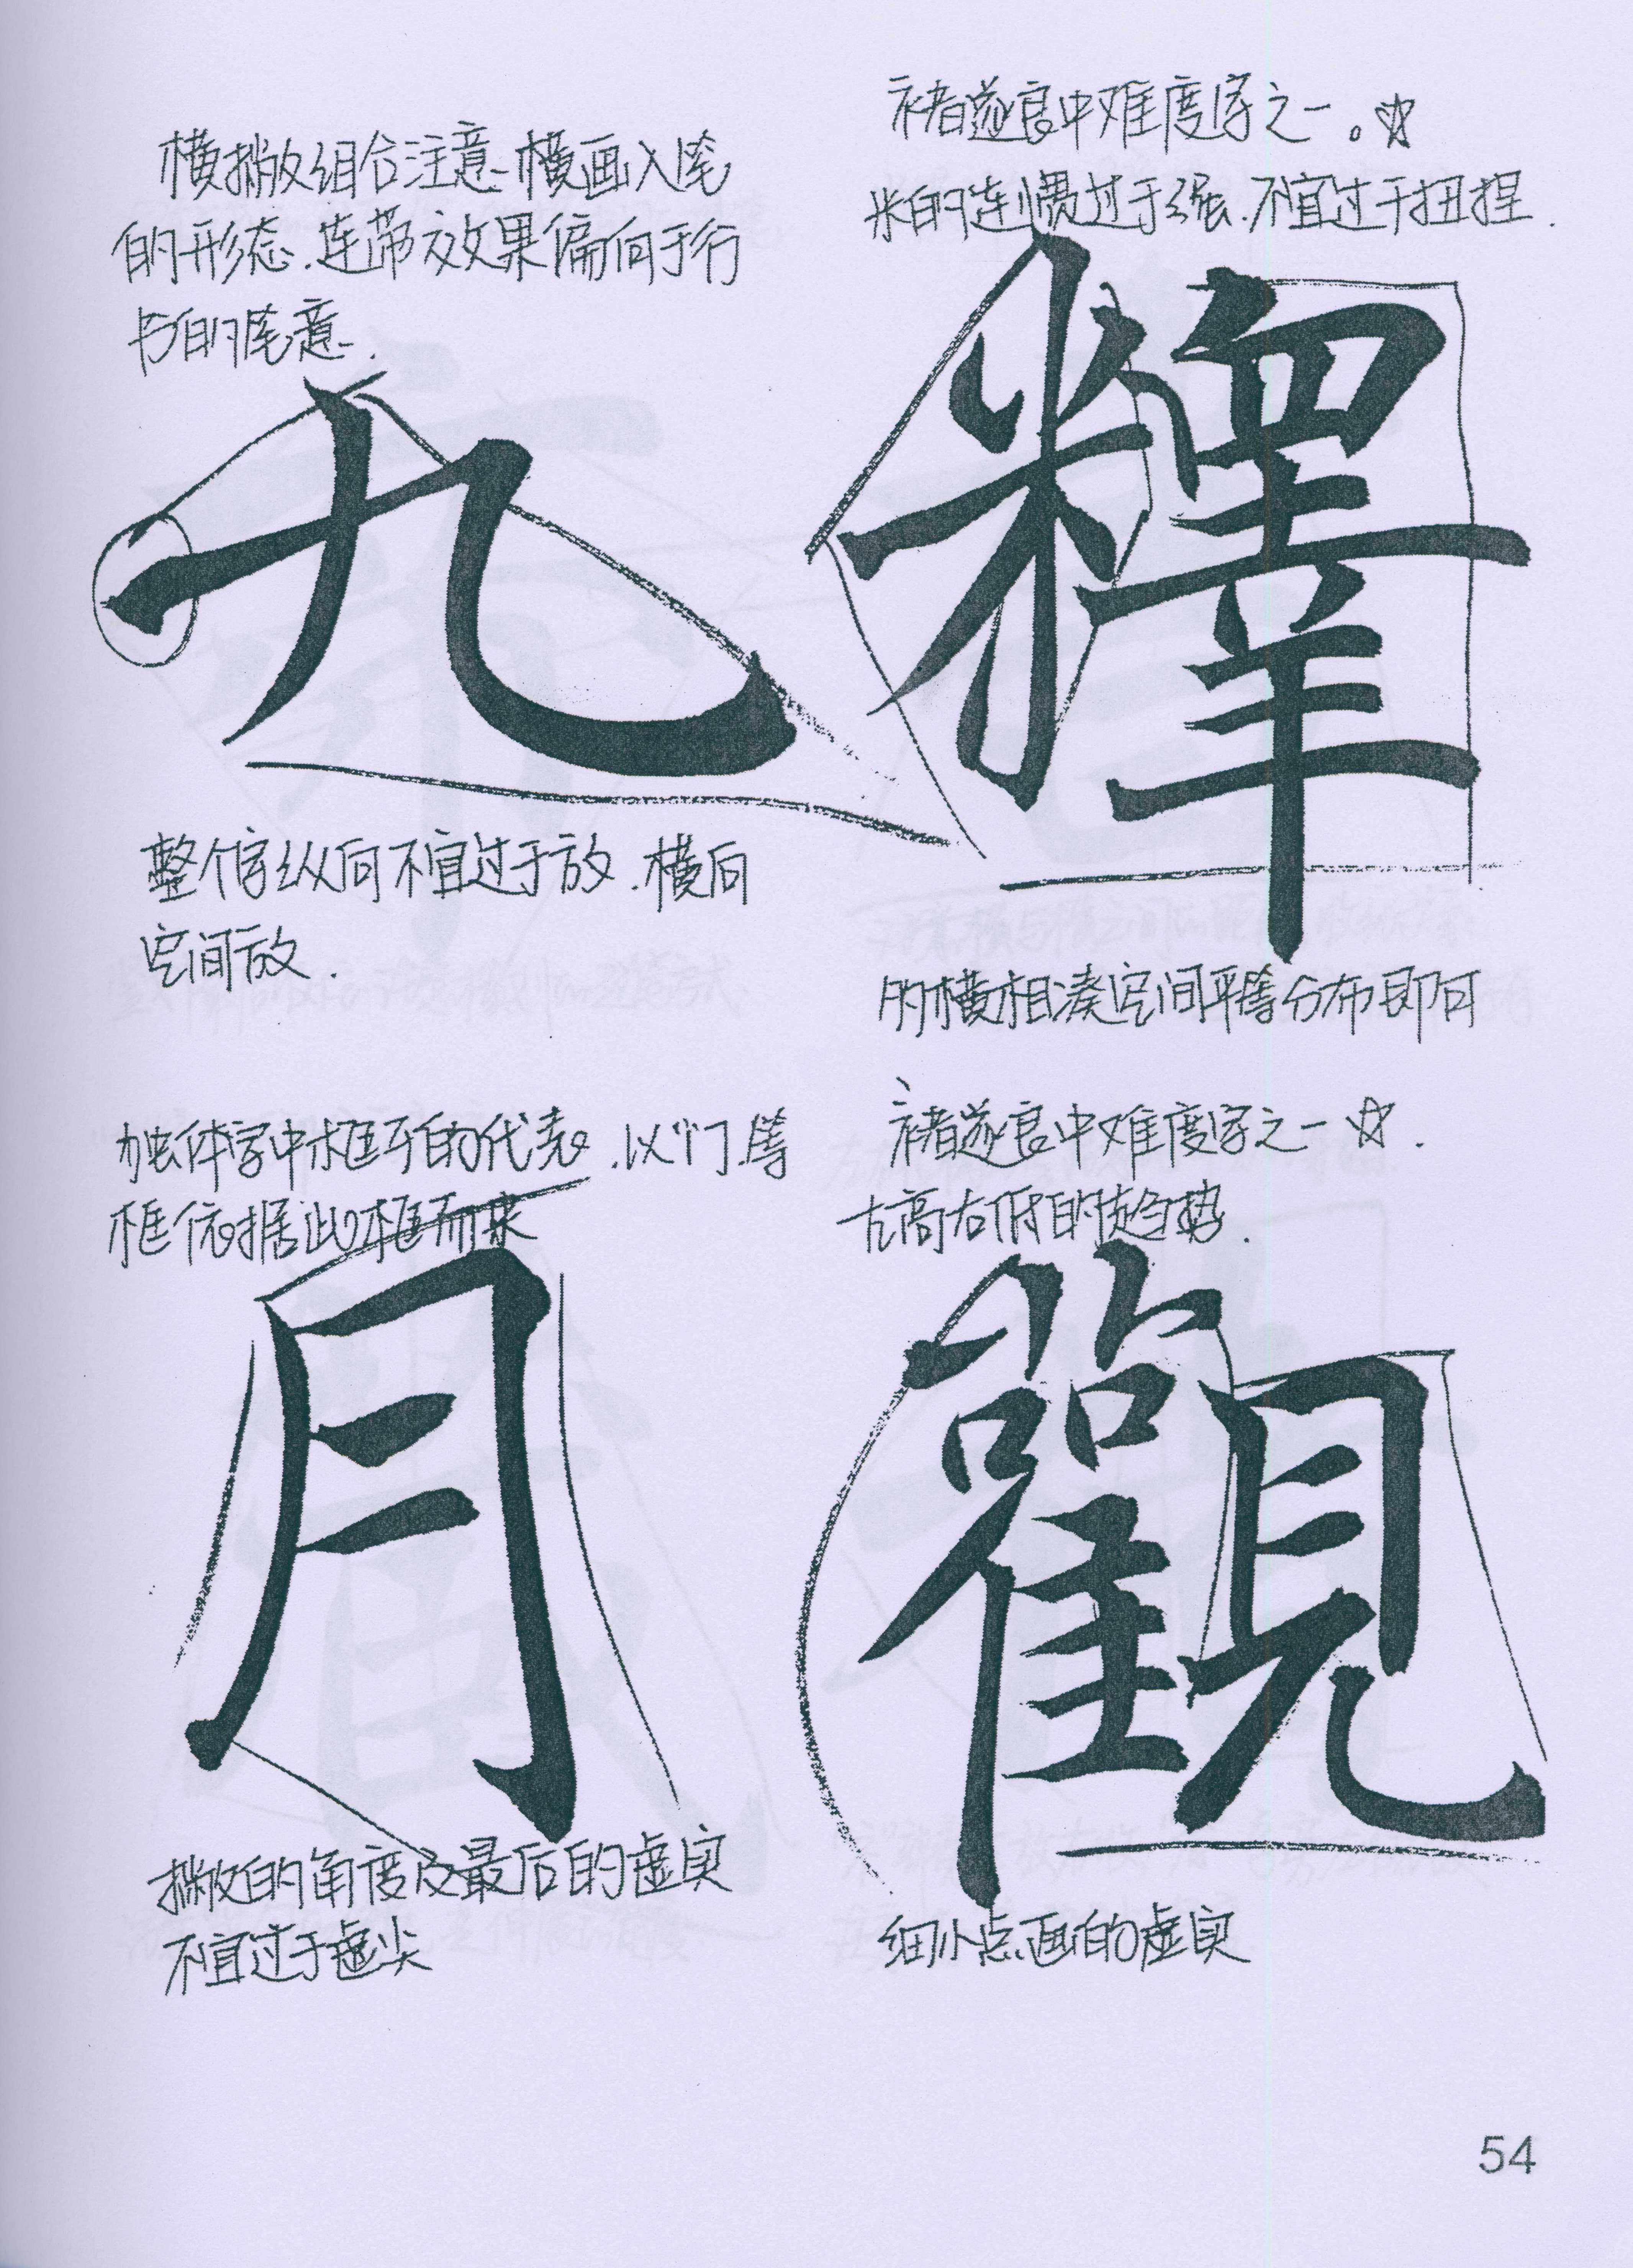 横撇组合注意横画入笔
的形态.连带效果偏向于行
书的笔意.
九
整个字纵向不宜过于放.横向
空间放.
褚遂良中难度字之一。☆
米的连惯过于强.不宜过于扭捏.
釋
的横相凑空间平等分布即可
独体字中框子的代表.以“门”等
框依据此框而来
月
撇的角度及最后的虚实
不宜过于虚尖
褚遂良中难度字之一☆.
左高右低的趋势.
觀
细小点画的虚实
54